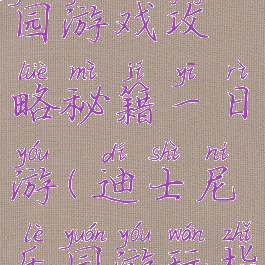 园游戏攻
lüè mì jí yī rì
略秘籍一日
yóu dí shì ní
游(迪士尼
lè yuán yóu wán zhǐ
乐园游玩指